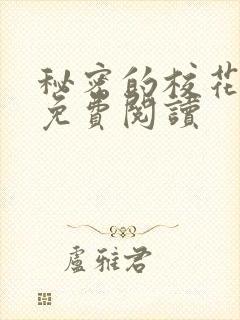 秘密的校花
免費閱讀
盧雅君